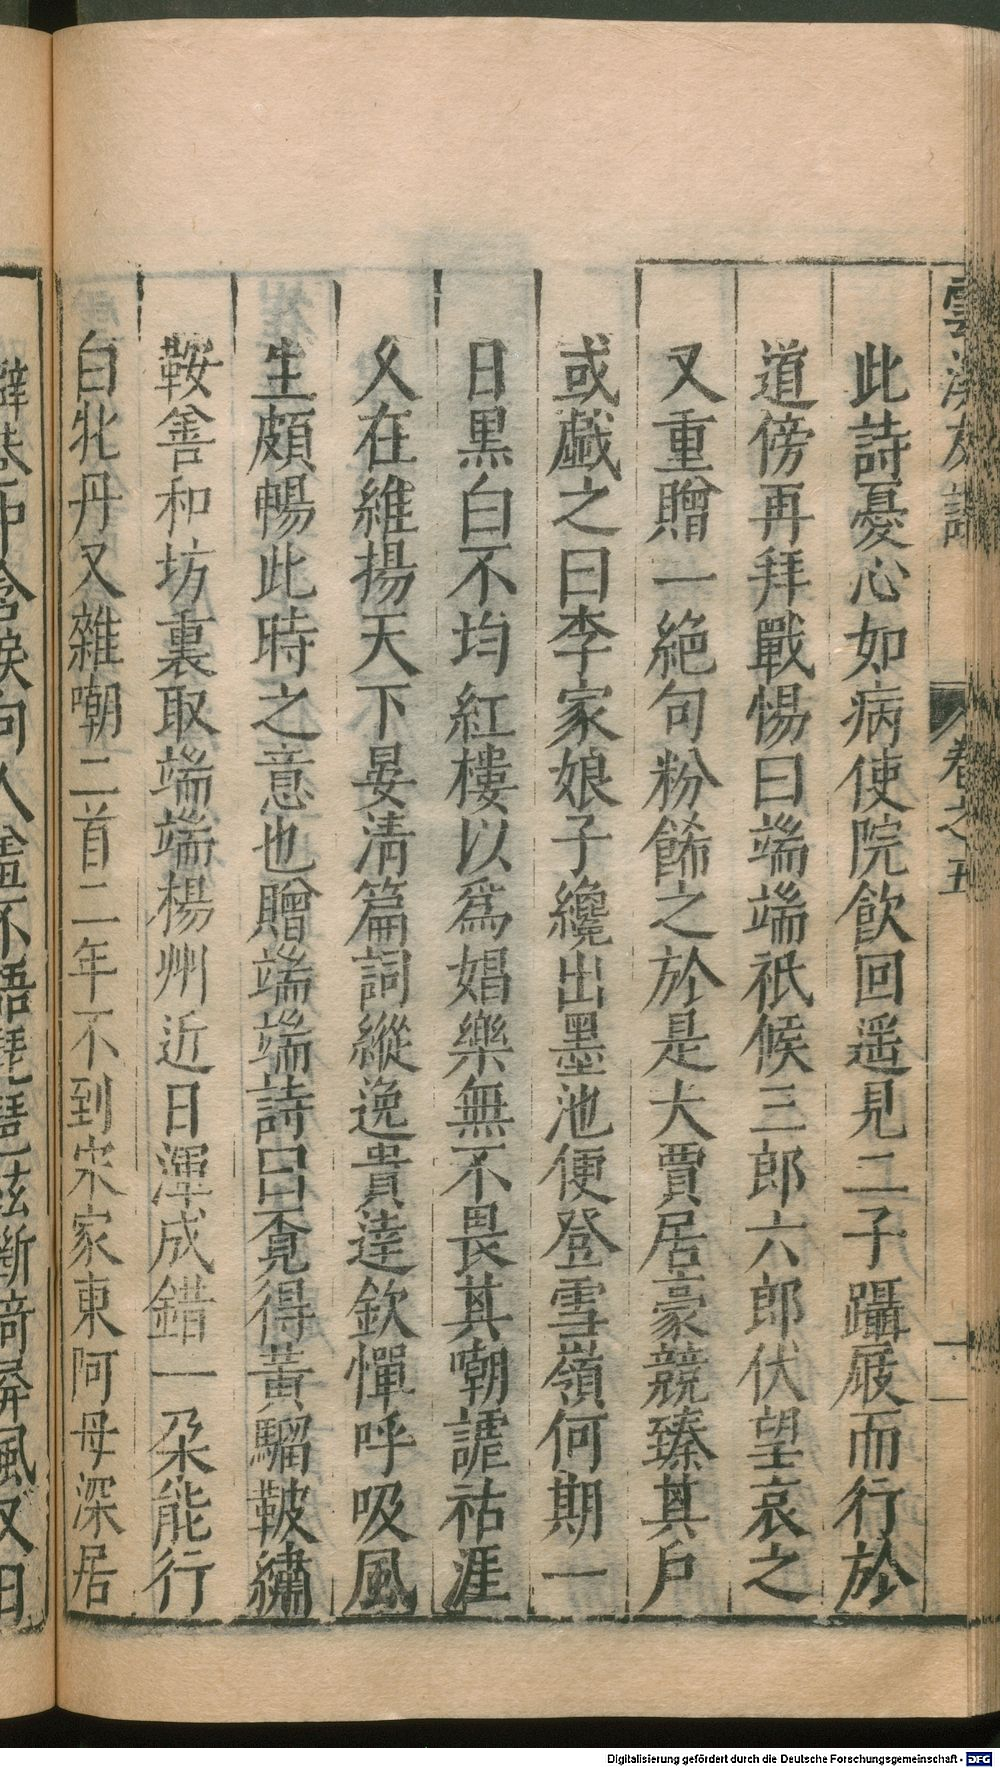 雲溪友議 卷之五
此詩憂心如病使院飲回遥見二子躡屐而行於
道傍再拜戰惕曰端端祇候三郎六郎伏望哀之
又重贈一絶句粉餙之於是大賈居豪競臻其戶
或戱之曰李家娘子纔出墨池便登雪嶺何期一
日黒白不均紅樓以爲娼樂無不畏其嘲謔祜涯
乆在維揚天下晏清篇詞縱逸貴達欽憚呼吸風
生頗暢此時之意也贈端端詩曰覔得黃騮鞁繡
鞍善和坊裏取端端楊州近日渾成錯一朶能行
白牝丹又雜嘲二首二年不到宋家東阿母深居
僻巷中含淚向人羞不語琵琶絃斷倚屏風又曰
Digitalisierung gefördert durch die Deutsche Forschungsgemeinschaft - DFG